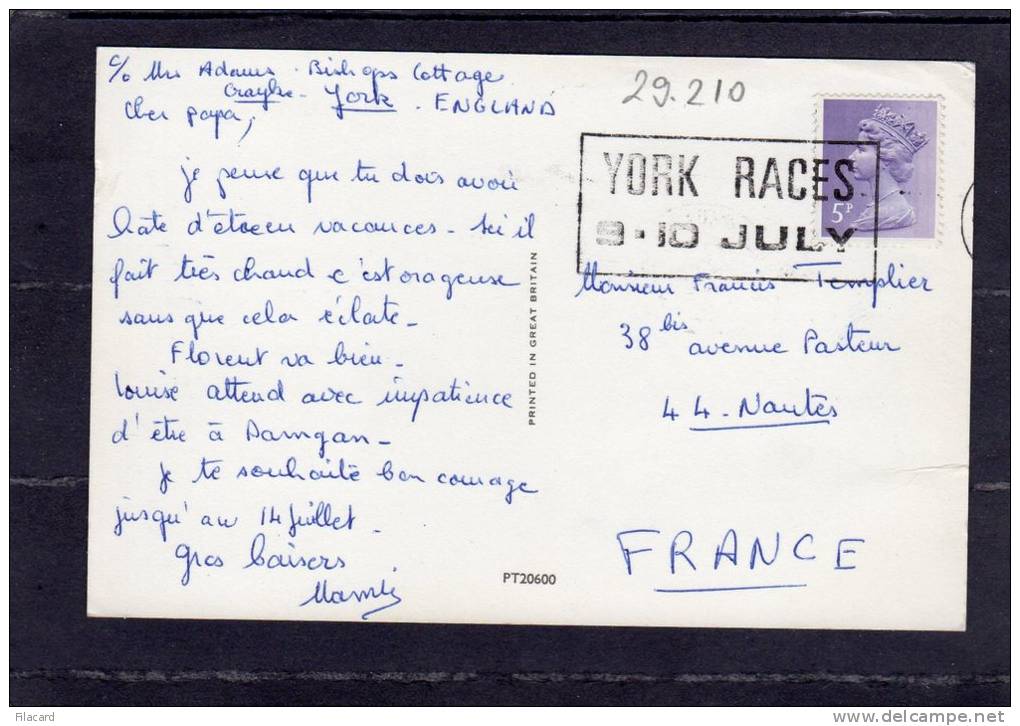 c/o Mrs Adams. Bishops Cottage
York. ENGLAND
Cher papa,
je pense que tu dois avoir
hâte d'être en vacances - Ici il
fait très chaud c'est orageuse
sans que cela éclate -
Florent va bien -
Louise attend avec impatience
d'être à Damgan -
je te souhaite bon courage
jusqu'au 14 juillet -
gros baisers
29.210
YORK RACES
9-10 JULY
5P
Monsieur Francis Templier
38 bis avenue Pasteur
44 - Nantes
FRANCE
PRINTED IN GREAT BRITAIN
PT20600
Filacard
www.delcampe.net